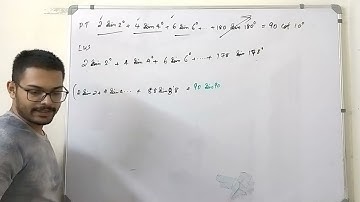 PT 2 sin 2° + 4 sin 4° + 6 sin 6° + ---180 sin 180° = 90 cot 10°
LHS
2 sin 2° + 4 sin 4° + 6 sin 6° + .... + 178 sin 178°
(2 sin 2 + 4 sin 4 ... + 88 sin 88 + 90 sin 90